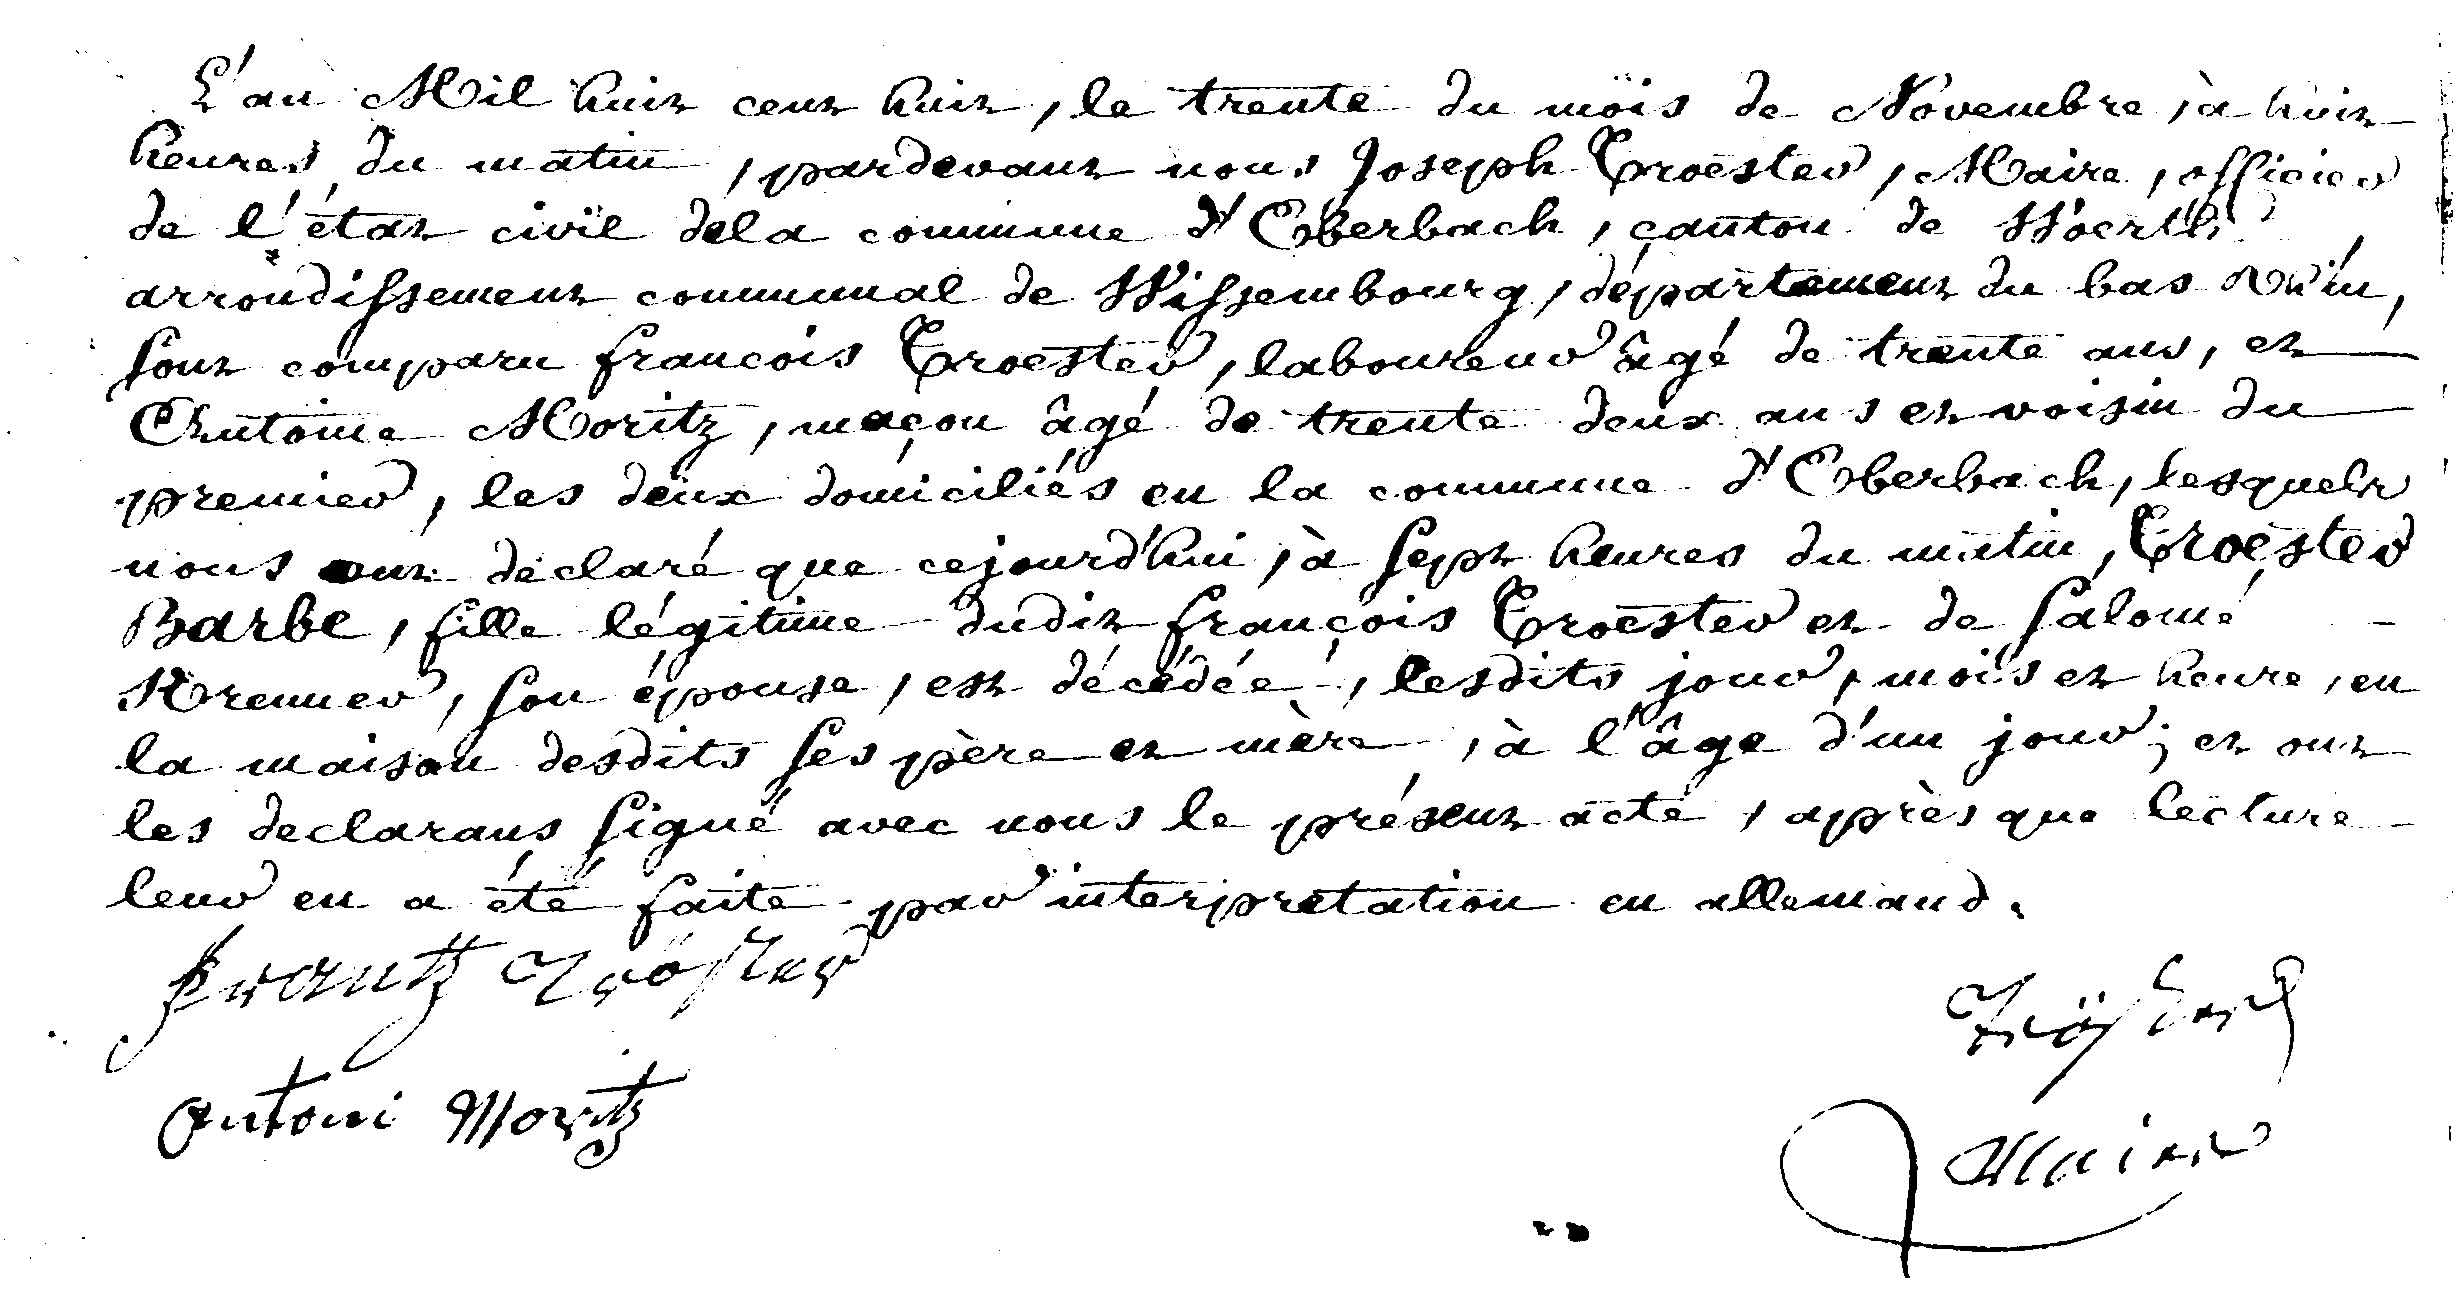 L'an Mil huit cent huit, le trente du mois de Novembre, à huit
heures du matin, pardevant nous Joseph Troester, Maire, officier
de l'état civil dela commune d'Oberbach, canton de Woerth
arrondissement communal de Wissembourg, département du bas Rhin,
sont comparu françois Troester, laboureur âgé de trente ans, et
Antoine Moritz, maçon âgé de trente deux ans et voisin du
premier, les deux domiciliés en la commune d'Oberbach, lesquels
nous ont déclaré que cejourd'hui, à sept heures du matin, Troester
Barbe, fille légitime dudit françois Troester et de Salomé
Krenner, son épouse, est décédée, lesdits jour, mois et heure, en
la maison desdits ses père et mère, à l'âge d'un jour; et ont
les declarans signé avec nous le présent acte, après que lecture
leur en a été faite par interpretation en allemand.
Frantz Tröster
Tröster
Antoni Moritz
Maire